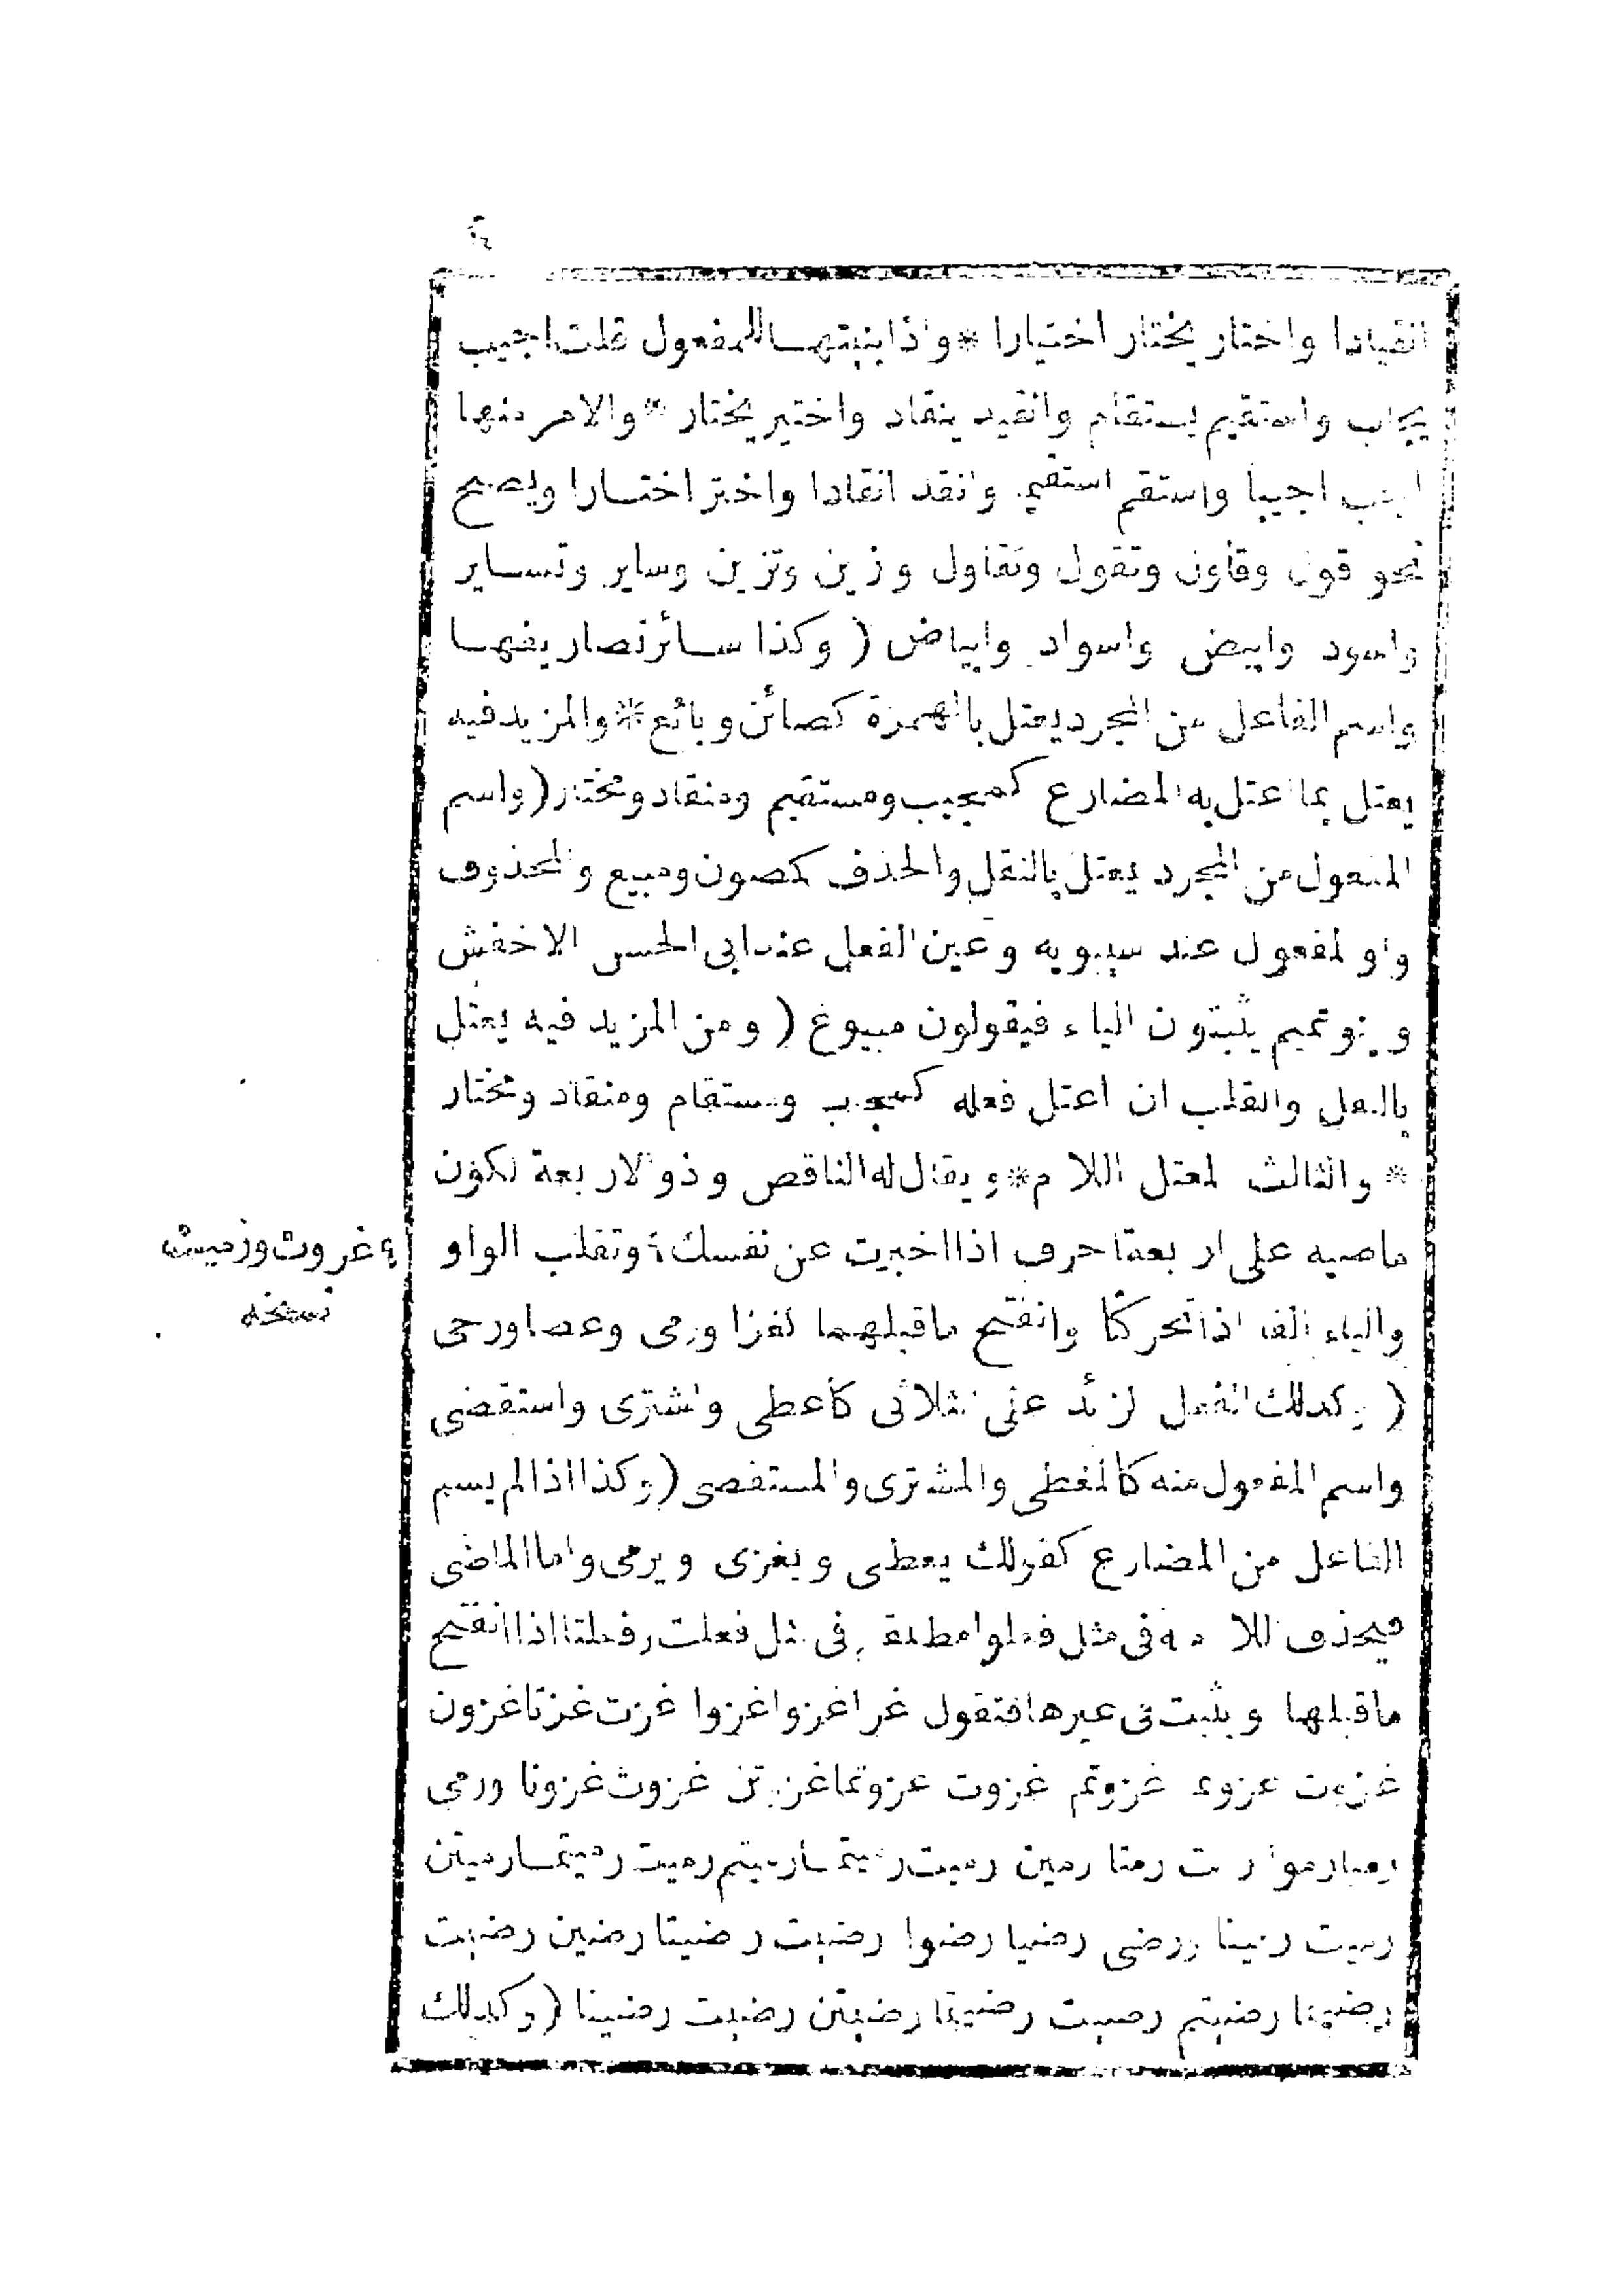 انقيادا واختار يختار اختيارا * واذا بنيتها للمفعول قلت اجيب
يجاب واستقيم يستقام وانقيد ينقاد واختير يختار * والامر منها
اجب اجيبا واستقم استقيما وانقد انقادا واختر اختارا ويصح
نحو قول وقاول وتقول وتقاول وزين وتزين وساير وتساير
واسود وابيض واسواد وابياض ( وكذا سائر تصاريفها
واسم الفاعل من المجرد يعتل بالهمزة كصائن وبائع * والمزيد فيه
يعتل بما اعتل به المضارع كمجيب ومستقيم ومنقاد ومختار ( واسم
المفعول من المجرد يعتل بالنقل والحذف كمصون ومبيع والمحذوف
واو المفعول عند سيبويه وعين الفعل عند ابى الحسن الاخفش
وبنو تميم يثبتون الياء فيقولون مبيوع ( ومن المزيد فيه يعتل
بالنقل والقلب ان اعتل فعله كمجاب ومستقام ومنقاد ومختار
* والثالث المعتل اللام * ويقال له الناقص وذو الاربعة لكون
ماضيه على اربعة احرف اذا اخبرت عن نفسك ٤ وتقلب الواو
والياء الفا اذا تحركتا وانفتح ماقبلهما كغزا ورمى وعصا ورحى
( وكذلك الفعل الزائد على الثلاثى كاعطى واشترى واستقصى
واسم المفعول منه كالمعطى والمشترى والمستقصى ( وكذا اذا لم يسم
الفاعل من المضارع كقولك يعطى ويغزى ويرمى واما الماضى
فيحذف اللام منه فى مثل فعلوا مطلقا وفى مثل فعلت وفعلتا اذا انفتح
ماقبلها ويثبت فى غيرها فتقول غزا غزوا غزوا غزت غزتا غزون
غزوت غزوتما غزوتم غزوت غزوتما غزوتن غزوت غزونا ورمى
رميا رموا رمت رمتا رمين رميت رميتما رميتم رميت رميتما رميتن
رميت رمينا ورضى رضيا رضوا رضيت رضيتا رضين رضيت
رضيتما رضيتم رضيت رضيتما رضيتن رضيت رضينا ( وكذلك
٤ غزوت ورميت
نسخه